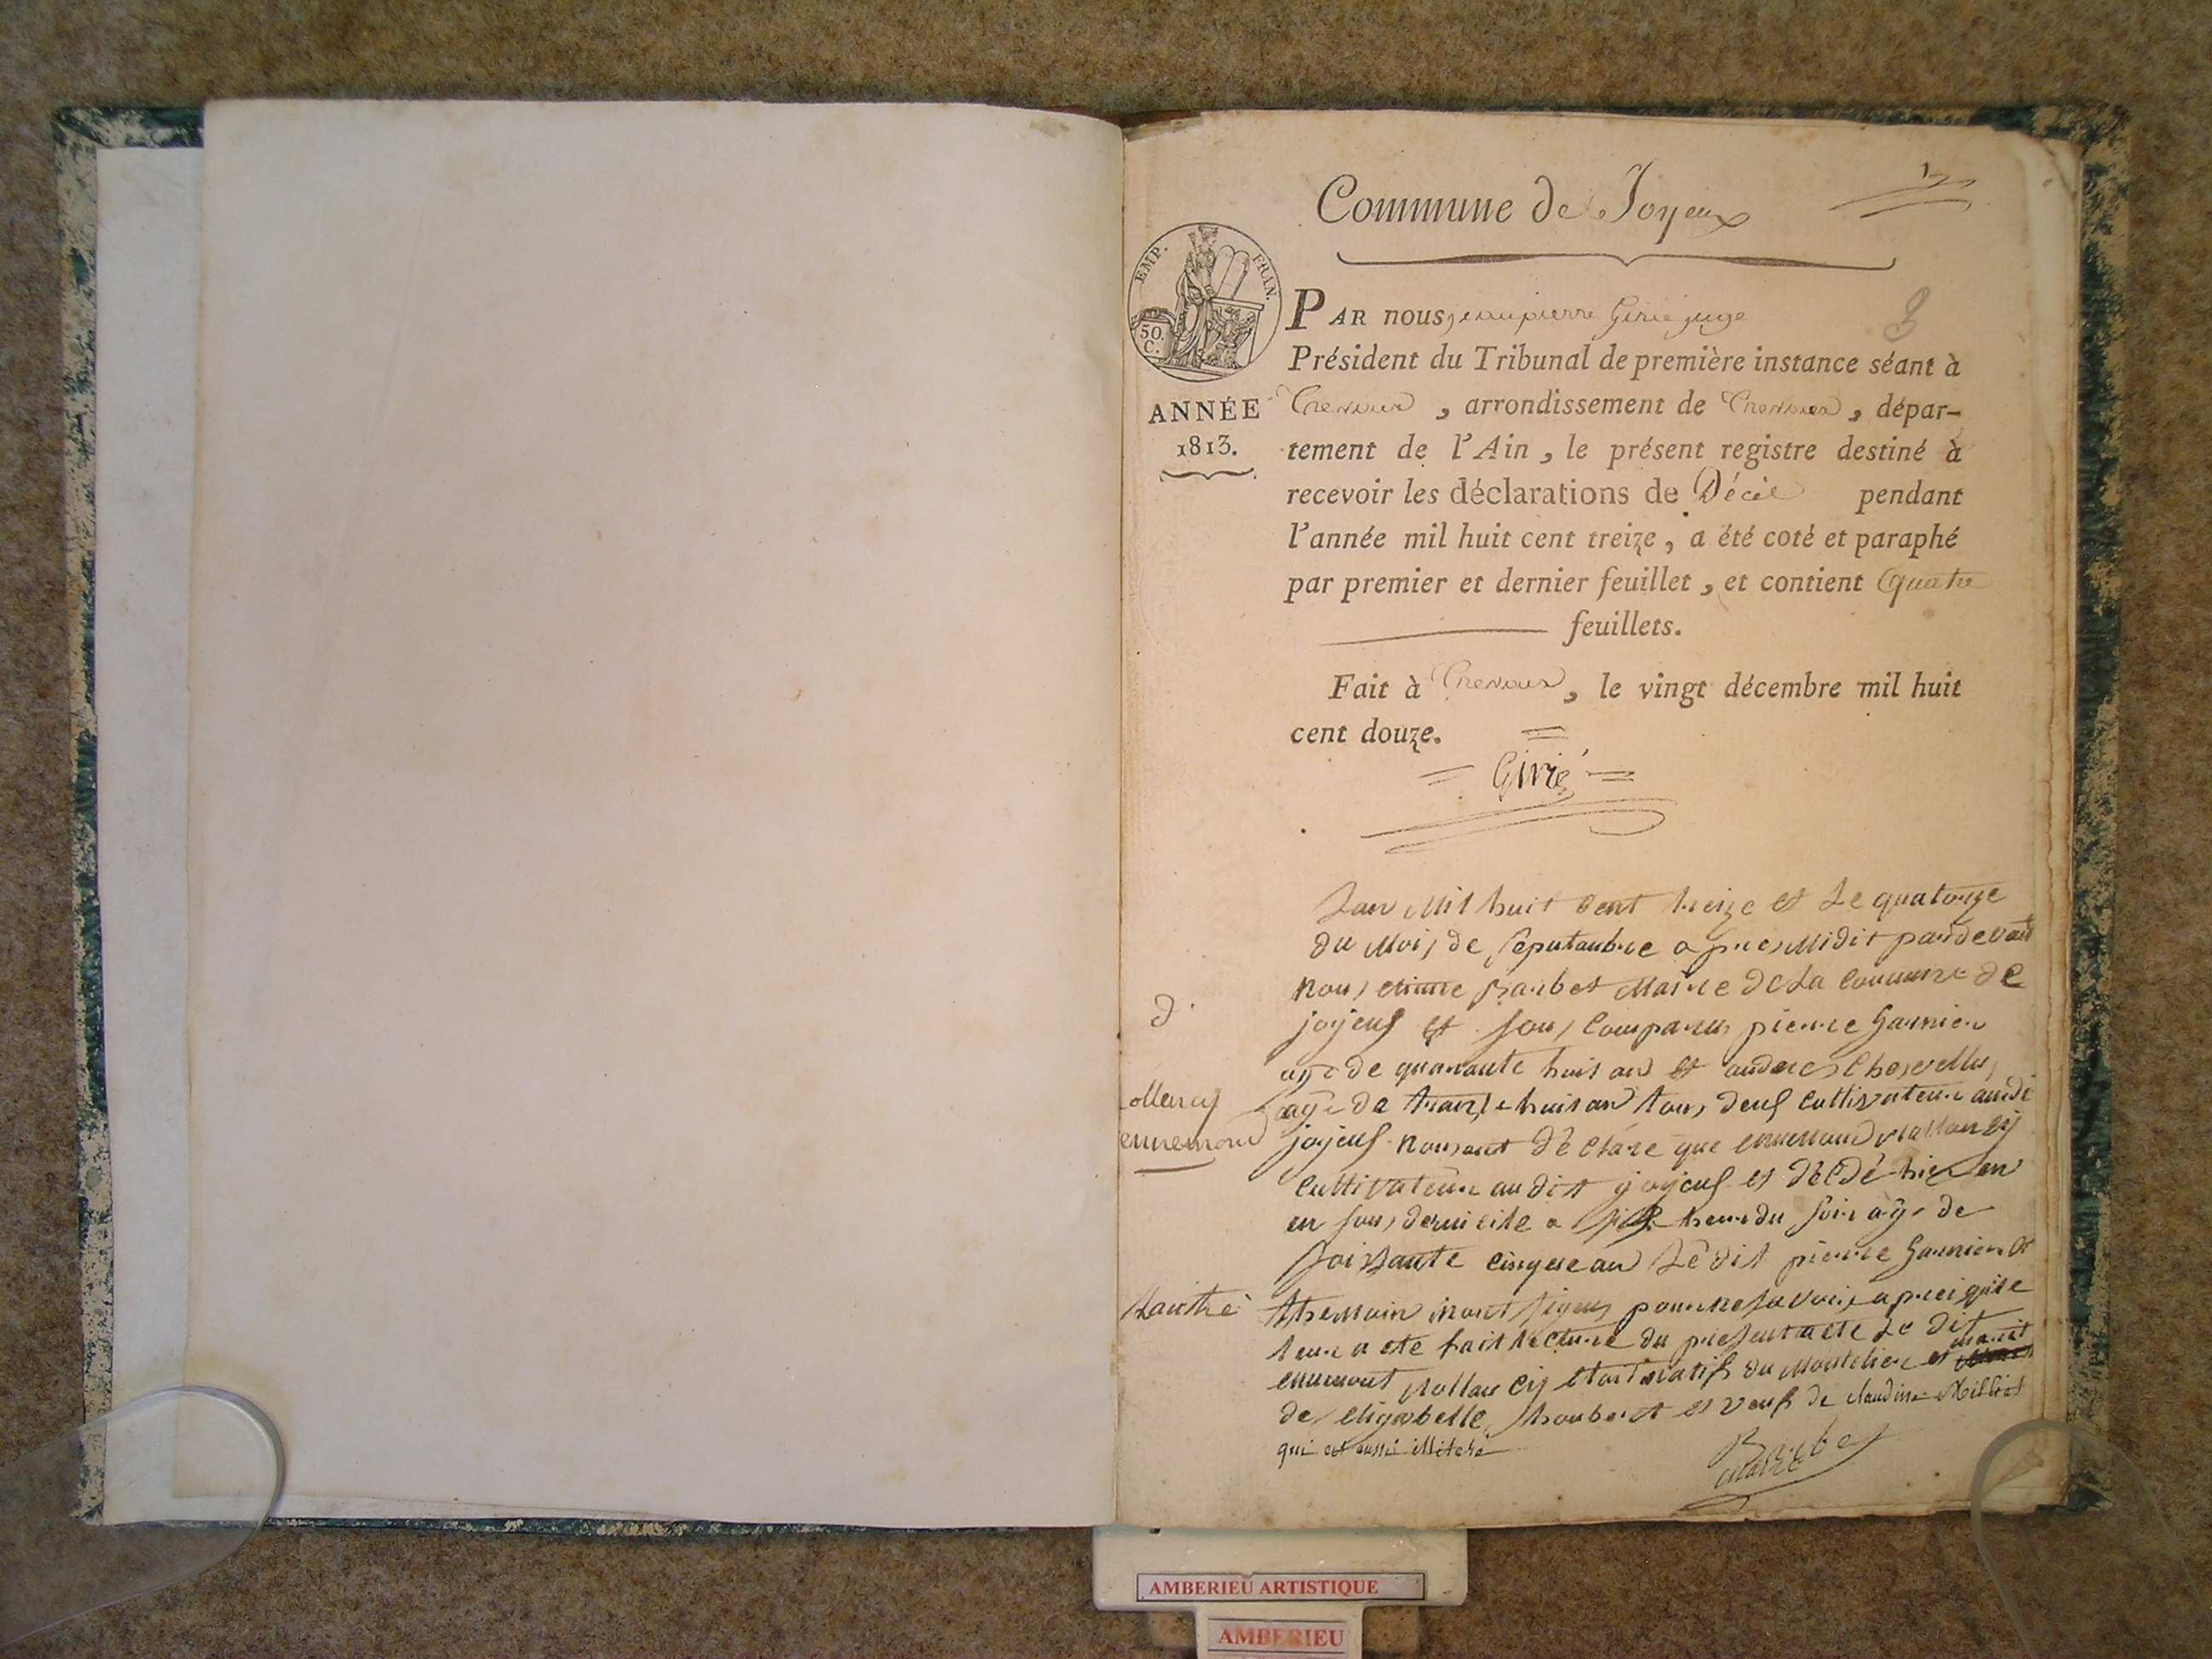 Commune de Joyeux
EMP. FRAN.
50. C.
ANNÉE
1813.
PAR nous, jeanpierre Girié juge
3
Président du Tribunal de première instance séant à
Trevoux, arrondissement de Trevoux, dépar-
tement de l'Ain, le présent registre destiné à
recevoir les déclarations de Décès pendant
l'année mil huit cent treize, a été coté et paraphé
par premier et dernier feuillet, et contient quatre
feuillets.
Fait à Trevoux, le vingt décembre mil huit
cent douze.
Girié
Lan Mil huit Cent treize et Le quatorze
du Mois de Seputanbre apres Midit pardevant
Nous etinne Barbet Maire De La Commune de
joyeus et sous Comparus pierre Garnier
age de quarante huit ans et
age de trante huit an tous deus Cultivateur audi
joyeus Nous ont Déclare que ennemond
Cultivateur au dit joyeus es décdé hier en
en sous domicile a heure du soir age de
soissante cinque an Le dit pierre Garnier et
themoin mont signes pour ne savoir apres que
leur a ete fait lecture du present acte Le dit
ennemont etant natif du Montelier et marit
de elizabelle et veuf de claudine Milliet
qui est aussi
Barbet
Maire
D.
ennemond
AMBERIEU ARTISTIQUE
AMBERIEU